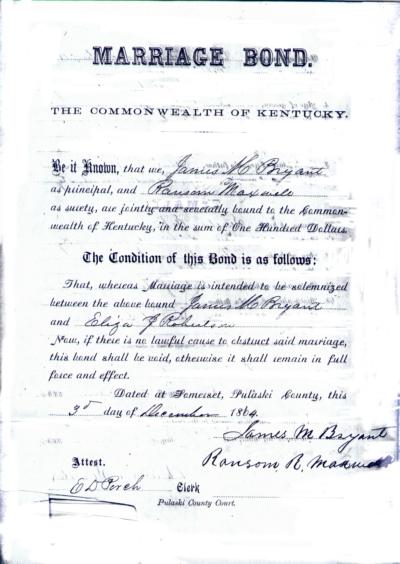 MARRIAGE BOND.
THE COMMONWEALTH OF KENTUCKY.
Be it Known, that we, James M Bryant
as principal, and Ransom Maxwell
as surety, are jointly and severally bound to the Common-
wealth of Kentucky, in the sum of One Hundred Dollars.
The Condition of this Bond is as follows:
That, whereas Marriage is intended to be solemnized
between the above bound James M Bryant
and Eliza J Robertson
Now, if there is no lawful cause to obstruct said marriage,
this bond shall be void, otherwise it shall remain in full
force and effect.
Dated at Somerset, Pulaski County, this
3d day of December 1864.
James M Bryant
Ransom R. Maxwell
Attest.
E D Porch Clerk
Pulaski County Court.